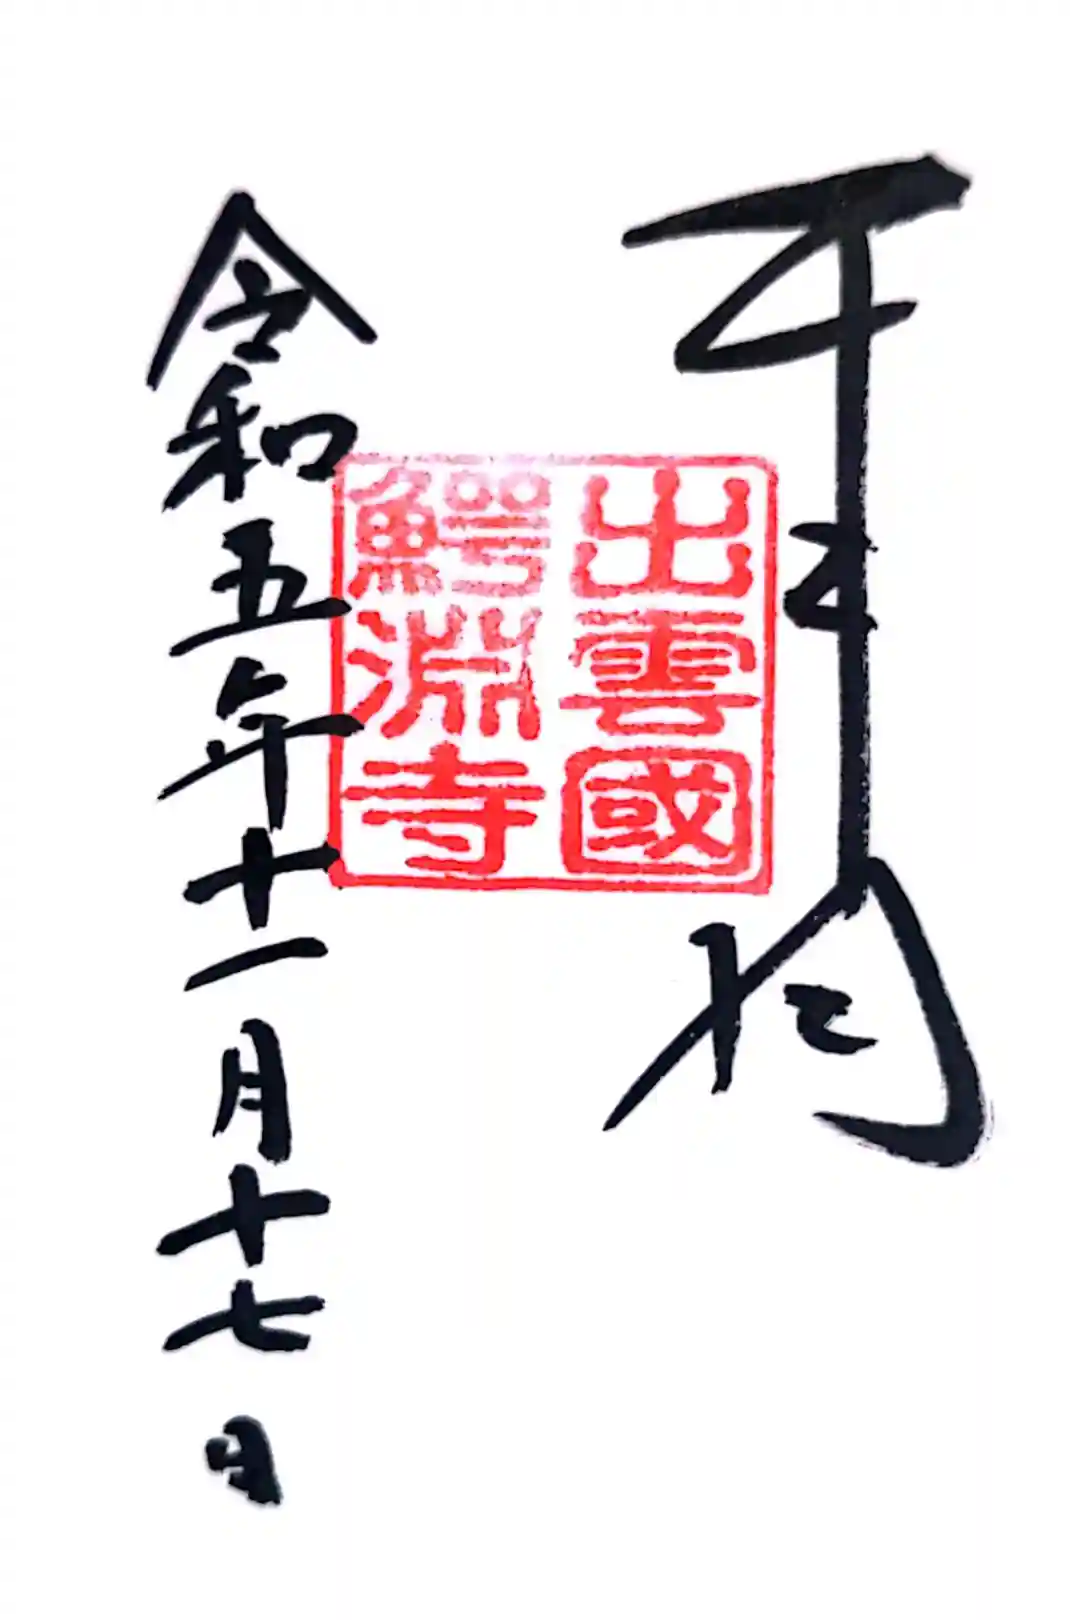 出雲國
鰐淵寺
令和五年十一月十七日